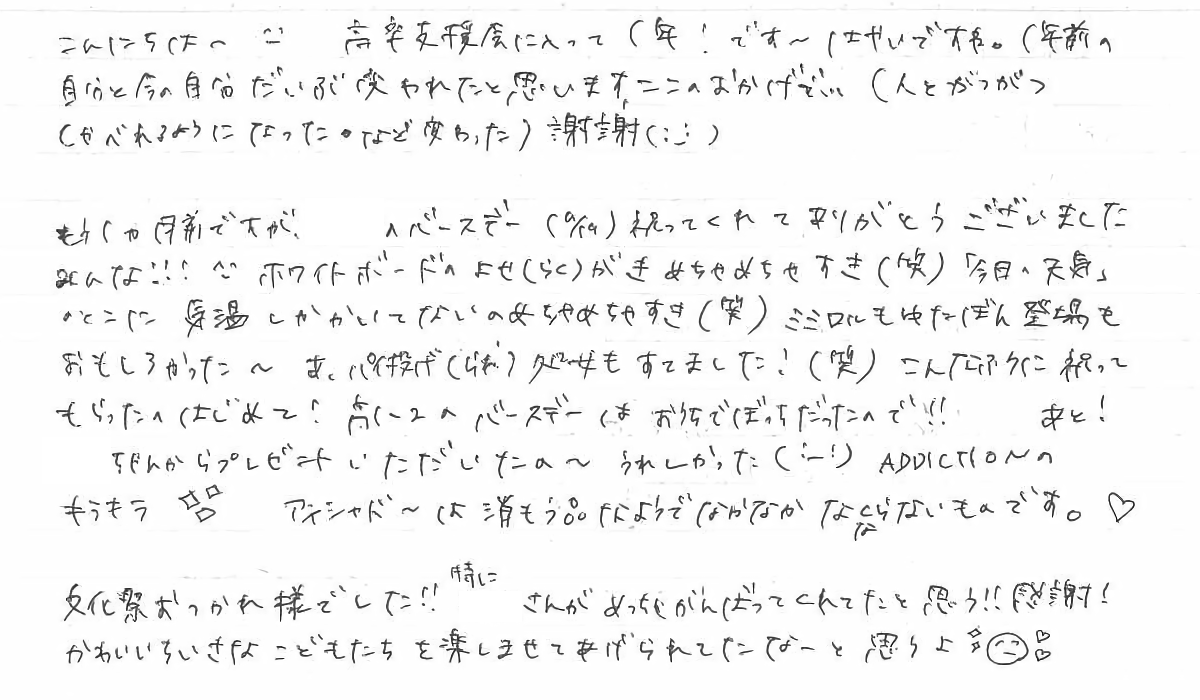 こんにちは〜 高卒支援会に入って1年!です〜はやいですね。1年前の
自分と今の自分だいぶ変われたと思います、ここのおかげで!!(人とがつがつ
しゃべれるようになった・など変わった)謝謝(:;)
もう1か月前ですが、 のバースデー(9/19)祝ってくれてありがとうございました
みんな!!! ホワイトボードのよせ(らく)がきめちゃめちゃすき(笑)「今日の天気」
のとこに 気温しかかいてないのめちゃめちゃすき(笑) ミミロルもゆたぽん登場も
おもしろかった〜 あ、パイ投げ(られ?)も すてました!(笑) こんなふうに祝って
もらったのはじめて!高1〜2のバースデーはおうちでぼっちだったので!! あと!
ちゃんからプレゼントいただいたの〜 うれしかった(:-!) ADDICTIONの
キラキラ アイシャドー〜は消もう品なようでなかなかなくならないものです。♡
文化祭おつかれ様でした!! 特に さんがめっちゃがんばってくれてたと思う!!感謝!
かわいいちいさなこどもたちを楽しませてあげられてたなーと思うよ